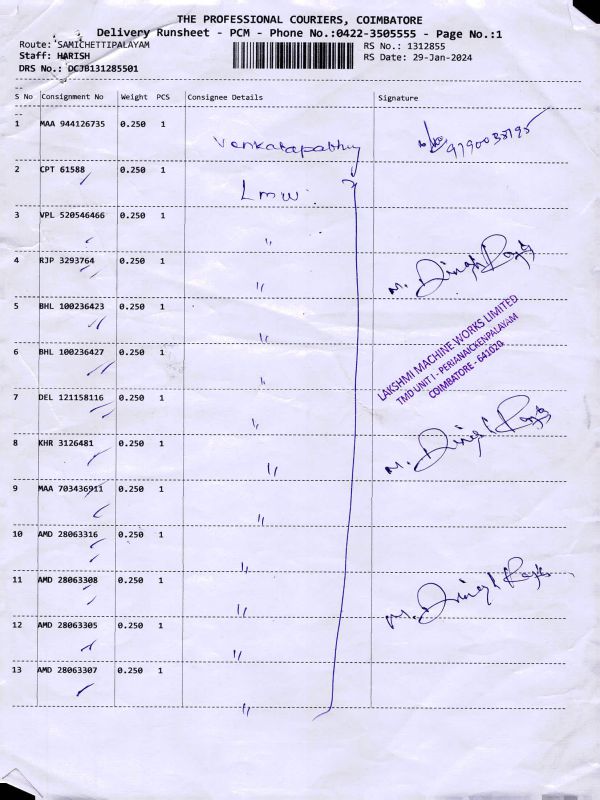 THE PROFESSIONAL COURIERS, COIMBATORE
Delivery Runsheet - PCM - Phone No.:0422-3505555 - Page No.:1
Route: SAMICHETTIPALAYAM
RS No.: 1312855
Staff: HARISH
RS Date: 29-Jan-2024
DRS No.: DCJB131285501
S No Consignment No Weight PCS Consignee Details Signature
1 MAA 944126735 0.250 1
Venkatapabhy 9790038795
2 CPT 61588 0.250 1
Lmw
3 VPL 520546466 0.250 1
"
4 RJP 3293764 0.250 1
" M. Dinesh
5 BHL 100236423 0.250 1
"
LAKSHMI MACHINE WORKS LIMITED
TMD UNIT I - PERIANAICKENPALAYAM
COIMBATORE - 641020
6 BHL 100236427 0.250 1
"
7 DEL 121158116 0.250 1
"
8 KHR 3126481 0.250 1
" M. Dinesh
9 MAA 703436911 0.250 1
"
10 AMD 28063316 0.250 1
"
11 AMD 28063308 0.250 1
" M. Dinesh
12 AMD 28063305 0.250 1
"
13 AMD 28063307 0.250 1
"